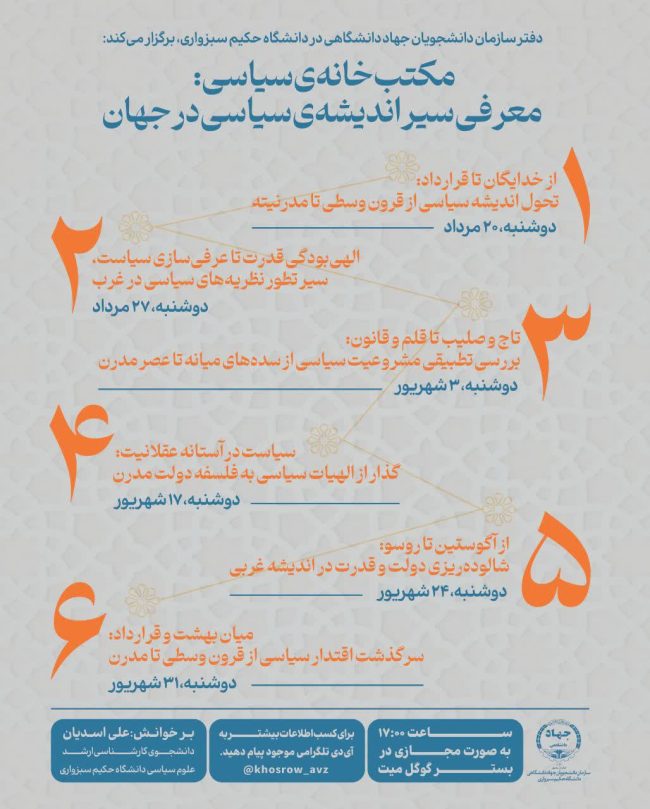 دفتر سازمان دانشجویان جهاد دانشگاهی در دانشگاه حکیم سبزواری، برگزار می‌کند:
مکتب‌خانه‌ی سیاسی:
معرفی سیر اندیشه‌ی سیاسی در جهان
۱
از خدایگان تا قرارداد:
تحول اندیشه سیاسی از قرون وسطی تا مدرنیته
دوشنبه، ۲۰ مرداد
۲
الهی‌بودگی قدرت تا عرفی‌سازی سیاست،
سیر تطور نظریه‌های سیاسی در غرب
دوشنبه، ۲۷ مرداد
۳
تاج و صلیب تا قلم و قانون:
بررسی تطبیقی مشروعیت سیاسی از سده‌های میانه تا عصر مدرن
دوشنبه، ۳ شهریور
۴
سیاست در آستانه عقلانیت:
گذار از الهیات سیاسی به فلسفه دولت مدرن
دوشنبه، ۱۷ شهریور
۵
از آگوستین تا روسو:
شالوده‌ریزی دولت و قدرت در اندیشه غربی
دوشنبه، ۲۴ شهریور
۶
میان بهشت و قرارداد:
سرگذشت اقتدار سیاسی از قرون وسطی تا مدرن
دوشنبه، ۳۱ شهریور
جهاد
دانشگاهی
سازمان دانشجویان جهاد دانشگاهی
دانشگاه حکیم سبزواری
ساعت ۱۷:۰۰
به صورت مجازی در
بستر گوگل میت
برای کسب اطلاعات بیشتر به
آی‌دی تلگرامی موجود پیام دهید.
@khosrow_avz
بر خوانش: علی اسدیان
دانشجوی کارشناسی ارشد
علوم سیاسی دانشگاه حکیم سبزواری